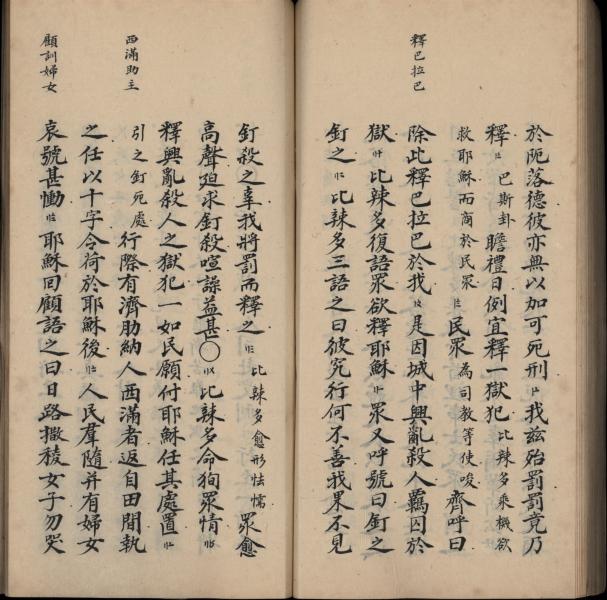 釋巴拉巴
於阨落德彼亦無以加可死刑我玆殆罰罰竟乃
釋巴斯卦瞻禮日例宜釋一獄犯比辣多乘機欲
救耶穌而商於民眾民眾為司教等使唆齊呼曰
除此釋巴拉巴於我是因城中興亂殺人羈囚於
獄比辣多復語眾欲釋耶穌眾又呼號曰釘之
釘之比辣多三語之曰彼究行何不善我果不見
釘殺之辜我將罰而釋之比辣多愈形怯懦眾愈
高聲廹求釘殺喧譟益甚〇比辣多命狥眾情
釋興亂殺人之獄犯一如民願付耶穌任其處置
西滿助主
引之釘死處行際有濟肋納人西滿者返自田間執
之任以十字令荷於耶穌後人民羣隨并有婦女
顧訓婦女
哀號甚慟耶穌回顧語之曰日路撒稜女子勿哭